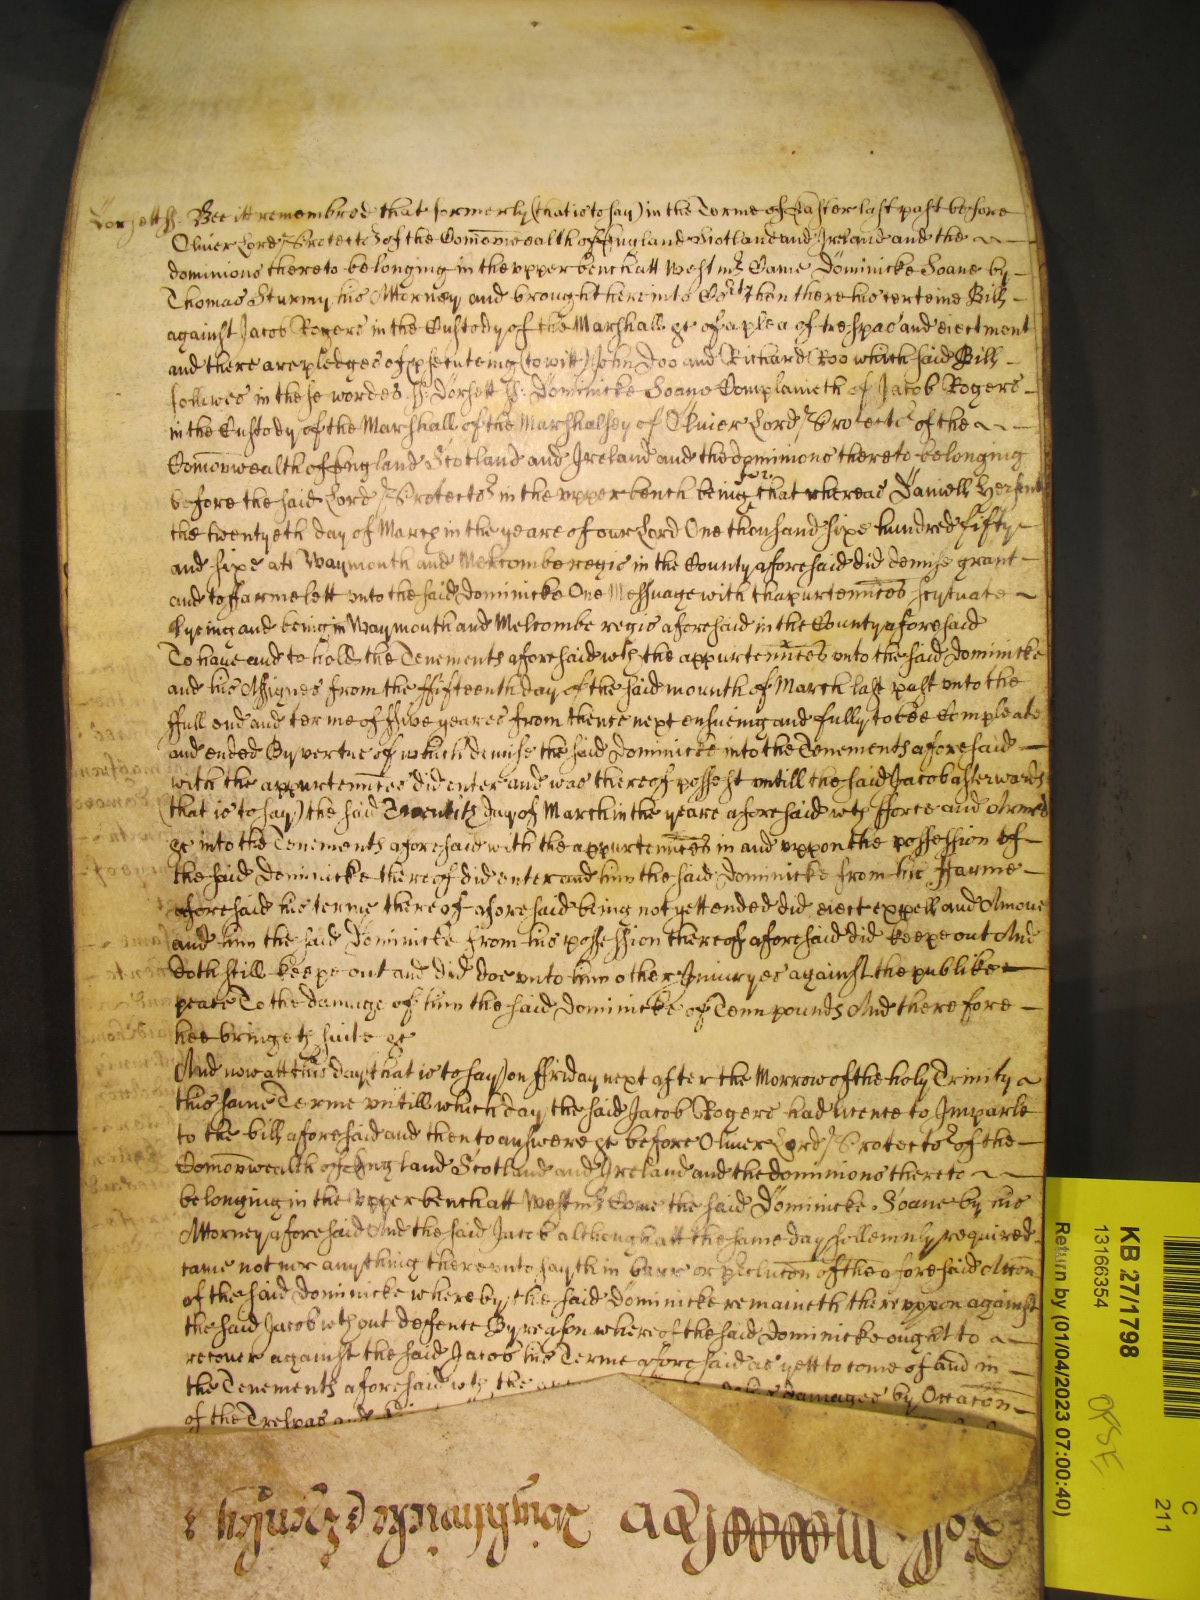 Dorsett ss: Bee itt remembred that formerly (that is to say) in the Terme of Easter last past before
Oliver Lord Protector of the Com̄onwealth of England Scotland and Ireland and the
dominions thereto belonging in the upper bench att Westmr Came Dominicke Soane by
Thomas Sturmy his Attorney and brought here into Cort then there his certeine Bill
against Jacob Rogers in the Custody of the Marshall &c of a plea of trespas and eiectment
and there are pledges of psecuteing (to witt) John Doo and Richard Roo which said Bill
follwes in these wordes ss: Dorsett ss: Dominicke Soane Complaineth of Jacob Rogers
in the Custody of the Marshall of the Marshalsey of Oliver Lord Protector of the
Com̄onwealth of England Scotland and Ireland and the dominions thereto belonging
before the said Lord Protector in the upper bench being for that whereas Daniell
the twentyeth day of March in the yeare of our Lord One thousand sixe hundred fifty
and sixe att Waymouth and Melcombe regis in the County aforesaid did demise grant
and to ffarme lett unto the said Dominicke One Messuage with thapurtennces scytuate
lyeing and being in Waymouth and Melcombe regis aforesaid in the County aforesaid
To have and to hold the Tenements aforesaid wth the appurtennces unto the said Dominicke
and his Assignes from the ffifteenth day of the said mounth of March last past unto the
ffull end and terme of ffive yeares from thence next ensueing and fully to bee Compleate
and ended By vertue of which demise the said Dominicke into the Tenements aforesaid
with the appurtennces did enter and was thereof possest untill the said Jacob afterwards
(that is to say) the said Twentith day of March in the yeare aforesaid wth fforce and Armes
&c into the Tenements aforesaid with the appurtennces in and uppon the possession of
the said Dominicke thereof did enter and him the said Dominicke from his ffarme
aforesaid his terme thereof aforesaid being not yett ended did eiect expell and Amove
and him the said Dominicke from his possession thereof aforesaid did keepe out And
doth still keepe out and did doe unto him other Iniuryes against the publike
peace To the damage of him the said Dominicke of Tenn pounds And therefore
hee bringeth suite &c
And now att this day (that is to say) on ffriday next after the Morrow of the holy Trinity
this same Terme untill which day the said Jacob Rogers had licence to Imparle
to the bill aforesaid and then to answere &c before Oliver Lord Protector of the
Com̄onwealth of England Scotland and Ireland and the dominions thereto
belonging in the upper bench att Westmr Come the said Dominicke Soane by his
Attorney aforesaid And the said Jacob although att the same day sollemnly required
came not nor anything thereunto sayth in barr or pclucon of the aforesaid Accon
of the said Dominicke whereby the said Dominicke remaineth thereuppon against
the said Jacob wthout deffence By reason whereof the said Dominicke ought to
recover against the said Jacob his Terme aforesaid as yett to come of and in
the Tenements aforesaid wth the damages by Occacon
of the Trespas and
KB 27/1798
13166354
Return by (01/04/2023 07:00:40)
C
211